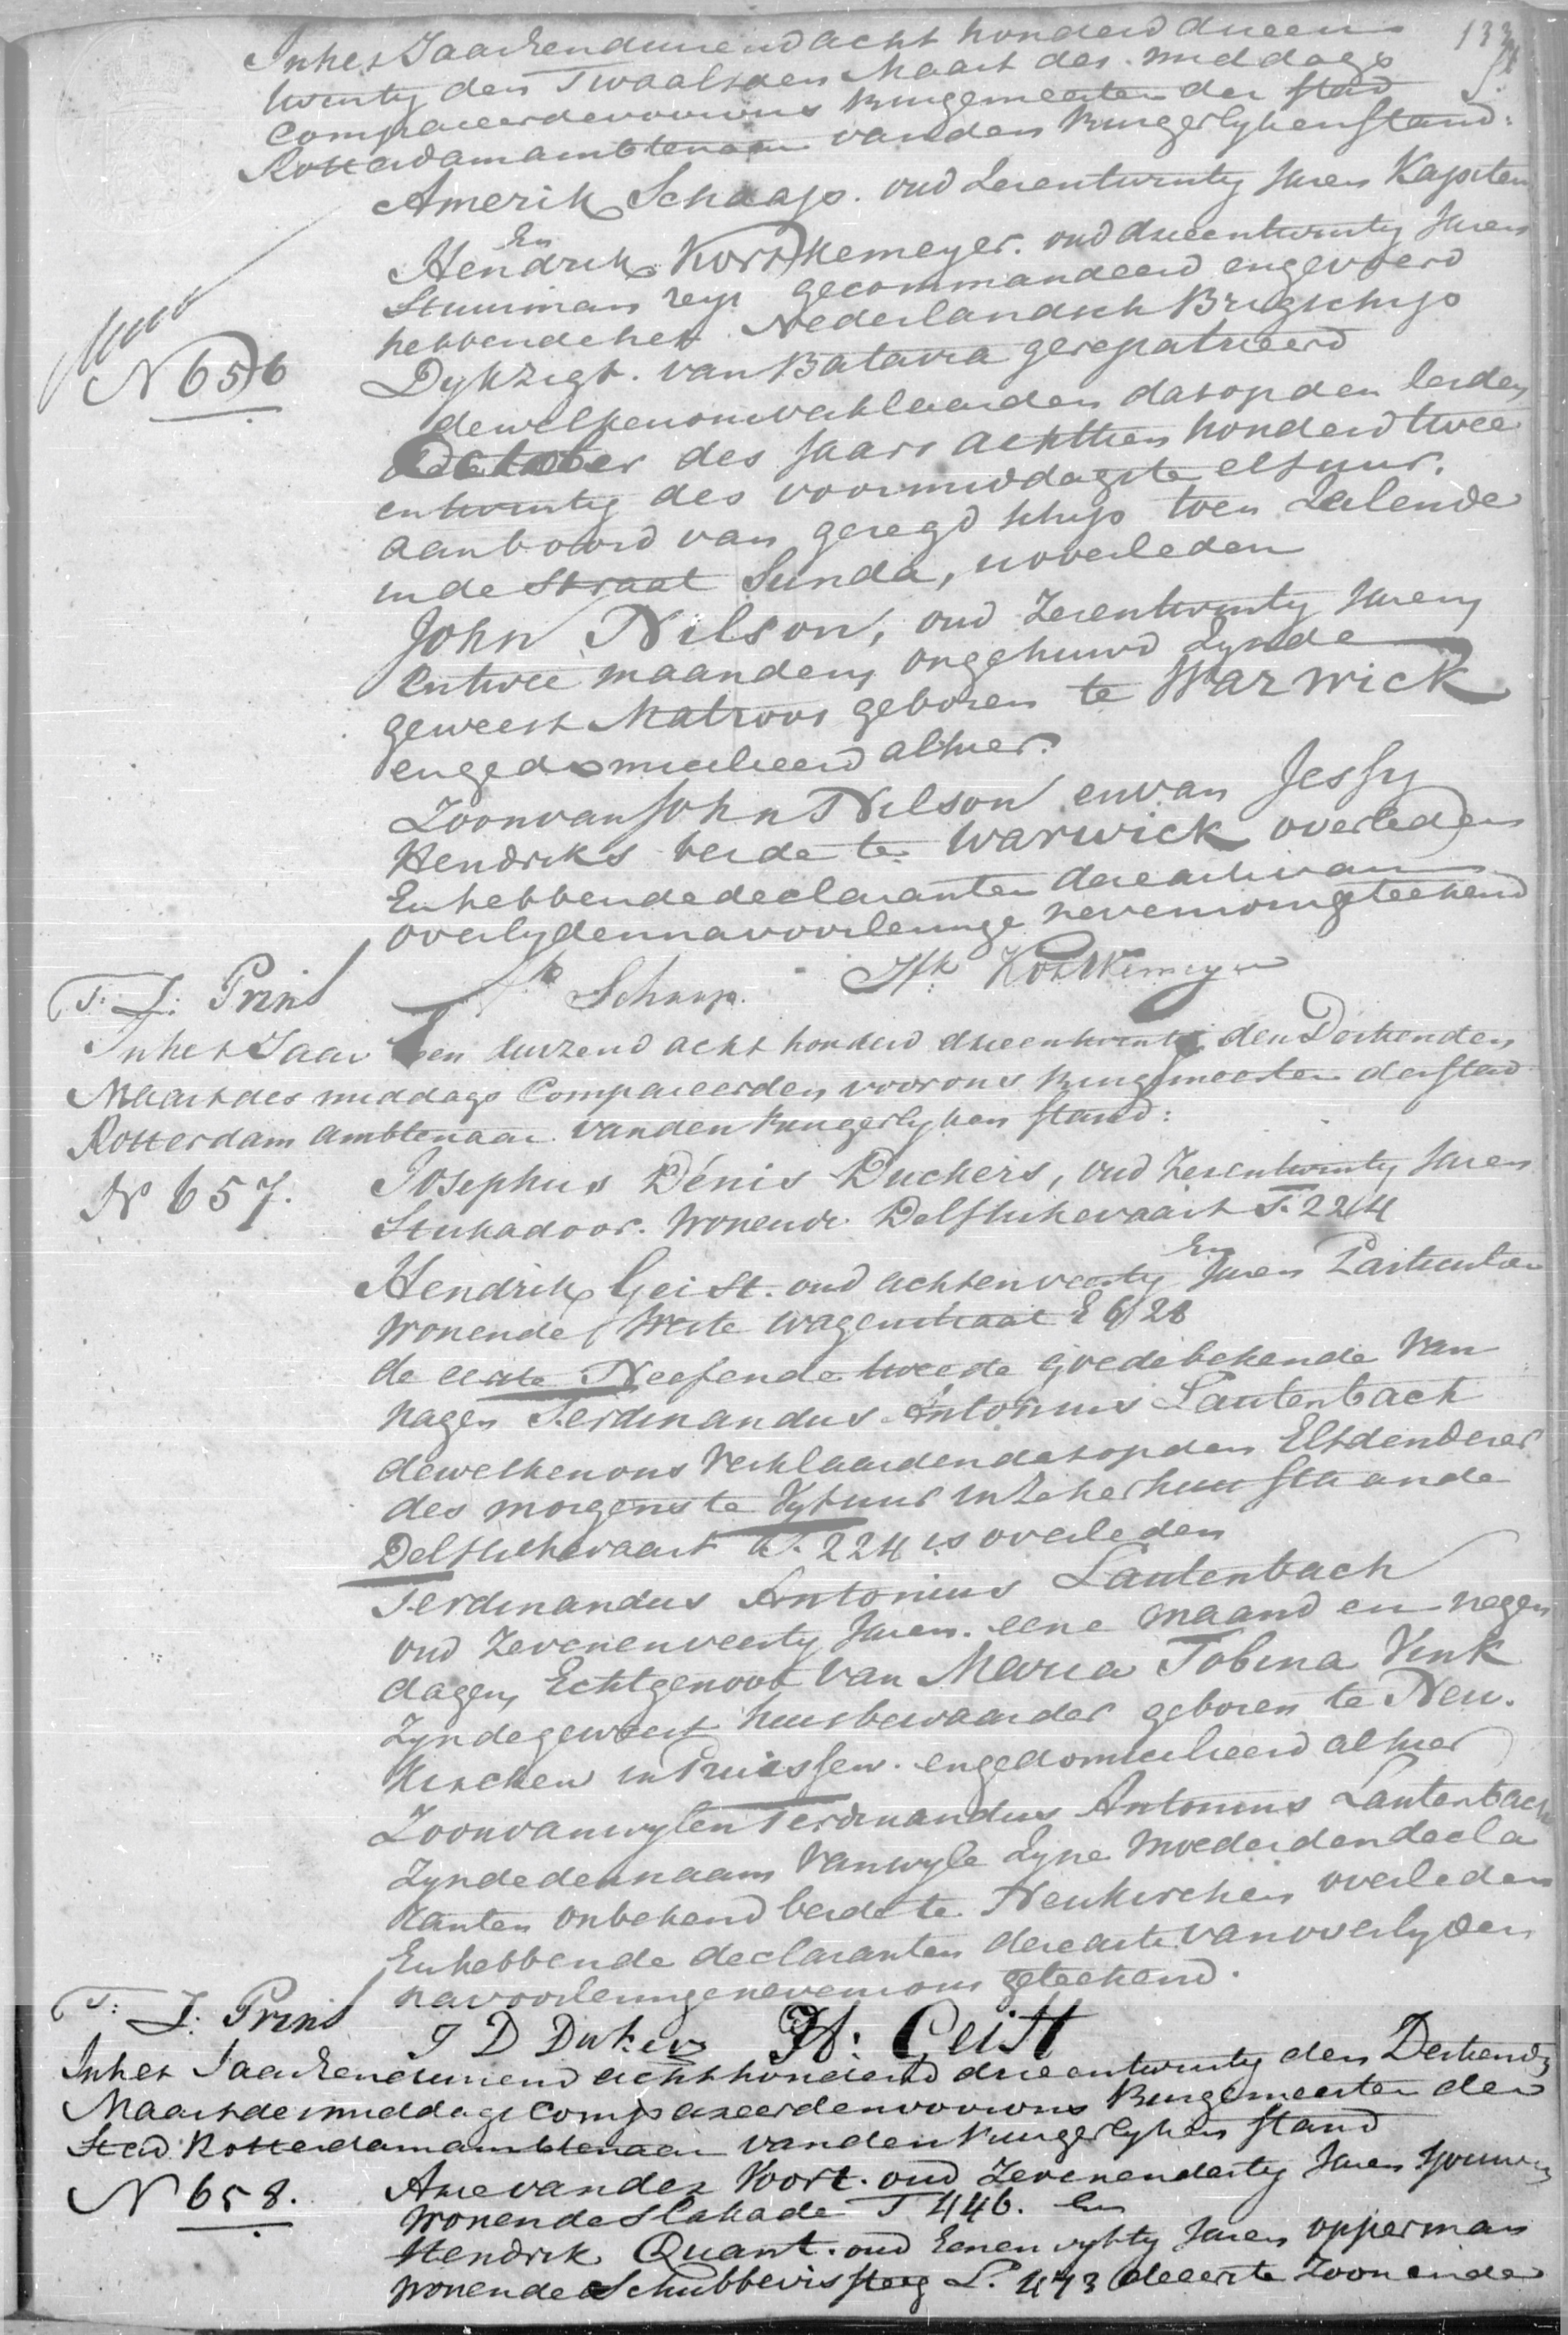 In het Jaar Eenduizend acht honderd drieen 133
twintig den Twaalfden Maart des middags
Compareerden voor ons Burgemeester der Stad
Rotterdam ambtenaar van den Burgerlyken Stand:
Amerik Schaap. oud Zesentwintig Jaren Kapitein
En
Hendrik Kortkemeyer. oud drieentwintig Jaren
Stuurman zeyn gecommandeerd en gevoerd
hebbende het Nederlandsch Brigschip
N 656
Dykzigt. van Batavia gerepatrieerd
dewelken ons verklaarden dat op den
October des Jaars achttien honderd twee
en twintig des voormiddags te elf uur.
aan boord van gezegd schip toen Zeilende
in de Straat Sunda, is overleden
John Nilson, oud Zevenentwintig Jaren
en twee maanden, ongehuwd Zynde
geweest Matroos geboren te Warwick
en gedomicilieerd alhier.
Zoon van John Nilson en van Jessy
Hendriks beide te Warwick overleden
En hebbende declaranten deze acte van
overlyden na voorlezinge nevens ons geteekend
F. J. Prins Schaap. Hk Kortkemeyer
In het Jaar Een duizend acht honderd drieentwintig den Dertienden
Maart des middags Compareerden voor ons Burgemeester der Stad
Rotterdam ambtenaar van den Burgerlyken Stand:
N 657. Josephus Dénis Duckers, oud Zesentwintig Jaren
Stukadoor. Wonende Delftschevaart F. 224
En
Hendrik Geist. oud achtenveertig Jaren Particulier
Wonende Weste Wagenstraat E 628
de eerste Neef en de tweede goede bekende van
nagen Ferdinandus Antonius Lautenbach
dewelken ons verklaarden dat op den Elfden dezer
des morgens te Vyf uur in Zeker huis staande
Delftschevaart F. 224 is overleden
Ferdinandus Antonius Lautenbach
oud Zevenenveertig Jaren. eene maand en negen
dagen, Echtgenoot van Maria Tobina Vink
Zynde geweest huisbewaarder geboren te Neu.
kirchen in Pruissen. en gedomicilieerd alhier
Zoon van wylen Ferdinandus Antonius Lautenbach
Zynde de naam van wyle Zyne Moeder den decla
ranten onbekend beide te Neukirchen overleden
En hebbende declaranten deze acte van overlyden
na voorlezinge nevens ons geteekend.
F. J. Prins J D Dukers H: Geist
In het Jaar Eenduizend acht honderd drieentwintig den Dertienden
Maart des middags Compareerden voor ons Burgemeester der
Stad Rotterdam ambtenaar van den Burgerlyken Stand
N 658. Arie van der Voort. oud Zevenendertig Jaren
Wonende Slakade T 446. En
Hendrik Quant. oud Eenenvyftig Jaren opperman
Wonende Schubbevissteeg L. 473 de eerste Zoon en de